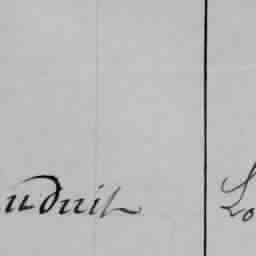 uduit Lo